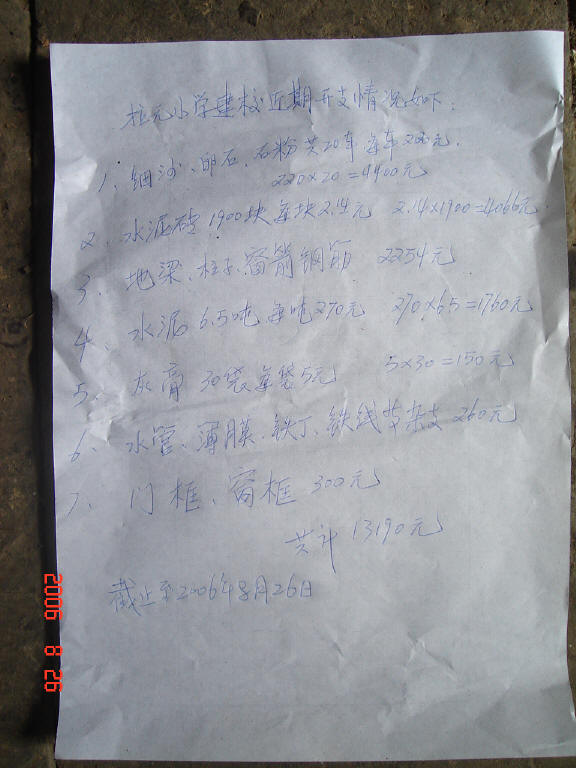 桂元小学建校近期开支情况如下:
1、细沙、卵石、石粉共20车每车220元.
220×20=4400元
2、水泥砖1900块每块2.14元 2.14×1900=4066元
3、地梁、柱子、窗箭钢筋 2254元
4、水泥6.5吨每吨270元 270×6.5=1760元
5、灰膏30袋每袋5元 5×30=150元
6、水管、薄膜、铁丁、铁线等杂支 260元
7、门框、窗框 300元
共计 13190元
截止至2006年8月26日
2006 8 26